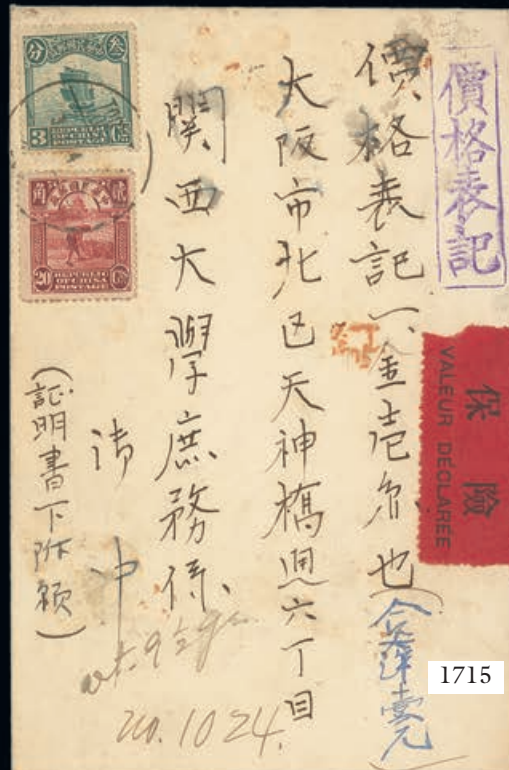 價格表記
保險
VALEUR DÉCLARÉE
價格表記一金壱
也
合洋壹元
大阪市北区天神橋通六丁目
関西大學庶務係
御中
(証明書下附願)
wt. 9½ g
no. 1024.
叁分
3 Cts
REPUBLIC
OF CHINA
POSTAGE
貳角
20 Cts
REPUBLIC
OF CHINA
POSTAGE
1715